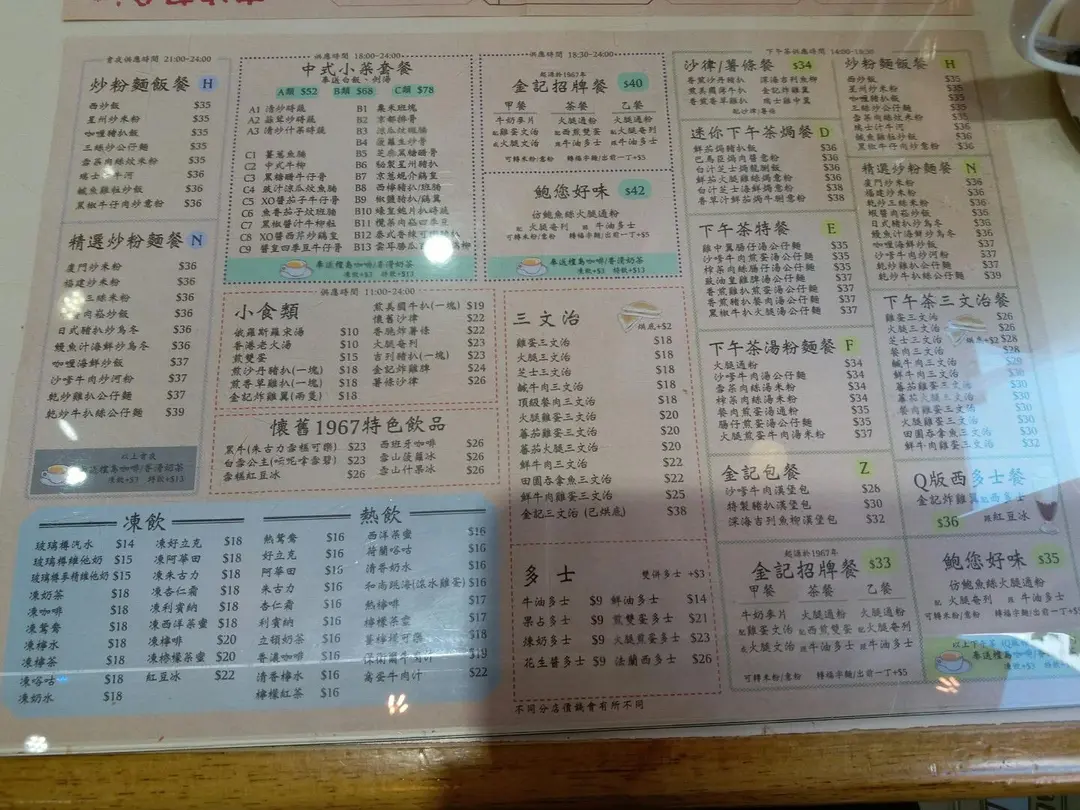 常夜供應時間 21:00-24:00
炒粉麵飯餐 H
西炒飯 $35
星州炒米粉 $35
咖喱豬扒飯 $35
三絲炒公仔麵 $35
雪菜肉絲炆米粉 $35
瑞士 牛河 $36
鹹魚雞粒炒飯 $36
黑椒牛仔肉炒意粉 $36
精選炒粉麵餐 N
廈門炒米粉 $36
福建炒米粉 $36
三絲炒米粉 $36
肉崧炒飯 $36
日式豬扒炒烏冬 $36
鰻魚汁海鮮炒烏冬 $36
咖喱海鮮炒飯 $37
沙嗲牛肉炒河粉 $37
乾炒雞扒公仔麵 $37
乾炒牛扒絲公仔麵 $39
以上常夜
奉送檀島咖啡/香滑奶茶
凍飲+$3 特飲+$13
供應時間 18:00-24:00
中式小菜套餐
奉送白飯、例湯
A類 $52 B類 $68 C類 $78
A1 清炒時蔬
A2 蒜茸炒時蔬
A3 清炒什菜時蔬
C1 薑蔥魚腩
C2 中式牛柳
C3 黑糖醋牛仔骨
C4 豉汁涼瓜炆魚腩
C5 XO醬茄子牛仔骨
C6 魚香茄子炆斑腩
C7 黑椒醬汁牛柳粒
C8 XO醬西芹炒雞皇
C9 醬皇四季豆牛仔骨
B1 粟米斑塊
B2 京都排骨
B3 涼瓜炆斑腩
B4 菠蘿生炒骨
B5 芝麻黑糖醋骨
B6 秘製星州豬扒
B7 京蔥焗介雞皇
B8 西檸豬扒/斑腩
B9 椒鹽豬扒/雞翼
B10 蠔皇鮑片扒時蔬
B11 欖菜肉崧四季豆
B12 泰式香辣
B13 雲耳勝瓜
奉送檀島咖啡/香滑奶茶
凍飲+$3 特飲+$13
供應時間 18:30-24:00
起源於1967年
金記招牌餐 $40
甲餐 茶餐 乙餐
牛奶麥片 火腿通粉 火腿通粉
配雞蛋文治 配西煎雙蛋 配火腿奄列
或火腿文治 跟牛油多士 跟牛油多士
可轉米粉/意粉 轉福字麵/出前一丁+$5
鮑您好味 $42
仿鮑魚絲火腿通粉
配 火腿奄列 跟 牛油多士
可轉米粉/意粉 轉福字麵/出前一丁+$5
奉送檀島咖啡/香滑奶茶
凍飲+$3 特飲+$13
供應時間 11:00-24:00
小食類
俄羅斯羅宋湯 $10
香港老火湯 $10
煎雙蛋 $15
煎沙丹豬扒(一塊) $18
煎香草雞扒(一塊) $18
金記炸雞翼(兩隻) $18
煎美國牛扒(一塊) $19
懷舊沙律 $22
香脆炸薯條 $22
火腿奄列 $23
吉列豬扒(一塊) $23
金記炸雞牌 $24
薯條沙律 $26
懷舊1967特色飲品
黑牛(朱古力雪糕可樂) $23
白雪公主(忌忌雪碧) $23
雪糕紅豆冰 $26
西班牙咖啡 $26
雪山菠蘿冰 $26
雪山什果冰 $26
三文治 烘底+$2
雞蛋三文治 $18
火腿三文治 $18
芝士三文治 $18
鹹牛肉三文治 $18
頂級餐肉三文治 $18
火腿雞蛋三文治 $20
蕃茄雞蛋三文治 $20
蕃茄火腿三文治 $20
鮮牛肉三文治 $22
田園吞拿魚三文治 $22
鮮牛肉雞蛋三文治 $25
金記三文治 (已烘底) $38
多士 雙併多士 +$3
牛油多士 $9 鮮油多士 $14
果占多士 $9 煎雙蛋多士 $21
煉奶多士 $9 火腿煎蛋多士 $23
花生醬多士 $9 法蘭西多士 $26
不同分店價錢會有所不同
凍飲
玻璃樽汽水 $14
玻璃樽維他奶 $15
玻璃樽麥精維他奶 $15
凍奶茶 $18
凍咖啡 $18
凍鴛鴦 $18
凍檸水 $18
凍檸茶 $18
凍唂咕 $18
凍奶水 $18
凍好立克 $18
凍阿華田 $18
凍朱古力 $18
凍杏仁霜 $18
凍利賓納 $18
凍西洋茶蜜 $18
凍檸啡 $20
凍檸檬茶蜜 $20
紅豆冰 $22
熱飲
熱鴛鴦 $16
好立克 $16
阿華田 $16
朱古力 $16
杏仁霜 $16
利賓納 $16
立頓奶茶 $16
香濃咖啡 $16
清香檸水 $16
檸檬紅茶 $16
西洋茶蜜 $16
荷蘭唂咕 $16
清香奶水 $16
和尚跳海(滾水雞蛋) $16
熱檸啡 $17
檸檬茶蜜 $17
薑檸檬可樂 $18
保衛爾牛肉汁 $19
窩蛋牛肉汁 $22
下午茶供應時間 14:00-18:30
沙律/薯條餐 $34
香煎沙丹豬扒 深海吉列魚柳
煎美國薄牛扒 金記炸雞牌
香煎香草雞扒 瑞士雞中翼
配沙律/薯條
迷你下午茶焗餐 D
鮮茄焗豬扒飯 $36
巴馬臣焗肉醬意粉 $36
白汁芝士焗龍脷飯 $36
鮮茄火腿雞絲焗意粉 $36
白汁芝士海鮮焗意粉 $38
香草汁鮮茄焗牛脷意粉 $38
下午茶特餐 E
雞中翼腸仔湯公仔麵 $35
沙嗲牛肉煎蛋湯公仔麵 $35
榨菜肉絲腸仔湯公仔麵 $35
豉油皇雞牌湯公仔麵 $37
香煎雞扒煎蛋湯公仔麵 $37
香煎豬扒餐肉湯公仔麵 $37
黑椒牛扒火腿湯公仔麵 $37
下午茶湯粉麵餐 F
火腿通粉 $34
沙嗲牛肉湯公仔麵 $34
雪菜肉絲湯米粉 $34
榨菜肉絲湯米粉 $34
餐肉煎蛋湯通粉 $35
腸仔煎蛋湯公仔麵 $35
火腿煎蛋牛肉湯米粉 $37
金記包餐 Z
沙嗲牛肉漢堡包 $28
特製豬扒漢堡包 $30
深海吉列魚柳漢堡包 $32
起源於1967年
金記招牌餐 $33
甲餐 茶餐 乙餐
牛奶麥片 火腿通粉 火腿通粉
配雞蛋文治 配西煎雙蛋 配火腿奄列
或火腿文治 跟牛油多士 跟牛油多士
可轉米粉/意粉 轉福字麵/出前一丁+$5
炒粉麵飯餐 H
西炒飯 $35
星州炒米粉 $35
咖喱豬扒飯 $35
三絲炒公仔麵 $35
雪菜肉絲炆米粉 $35
瑞士汁牛河 $36
鹹魚雞粒炒飯 $36
黑椒牛仔肉炒意粉 $36
精選炒粉麵餐 N
廈門炒米粉 $36
福建炒米粉 $36
乾炒三絲米粉 $36
蝦醬肉崧炒飯 $35
日式豬扒炒烏冬 $36
鰻魚汁海鮮炒烏冬 $36
咖喱海鮮炒飯 $37
沙嗲牛肉炒河粉 $37
乾炒雞扒公仔麵 $37
乾炒牛扒絲公仔麵 $39
下午茶三文治餐
雞蛋三文治 $26
火腿三文治 $26
芝士三文治 烘底+$2 $28
餐肉三文治 $28
鹹牛肉三文治 $29
鮮牛肉三文治 $30
蕃茄雞蛋三文治 $30
火腿雞蛋三文治 $30
餐肉雞蛋三文治 $30
鹹牛肉雞蛋三文治 $30
田園吞拿魚三文治 $30
鮮牛肉雞蛋三文治 $32
Q版西多士餐
金記炸雞翼配西多士
$36 跟紅豆冰
鮑您好味 $35
仿鮑魚絲火腿通粉
配 火腿奄列 跟 牛油多士
可轉米粉/意粉 轉福字麵/出前一丁+$5
奉送檀島咖啡/香滑奶茶
凍飲+$3